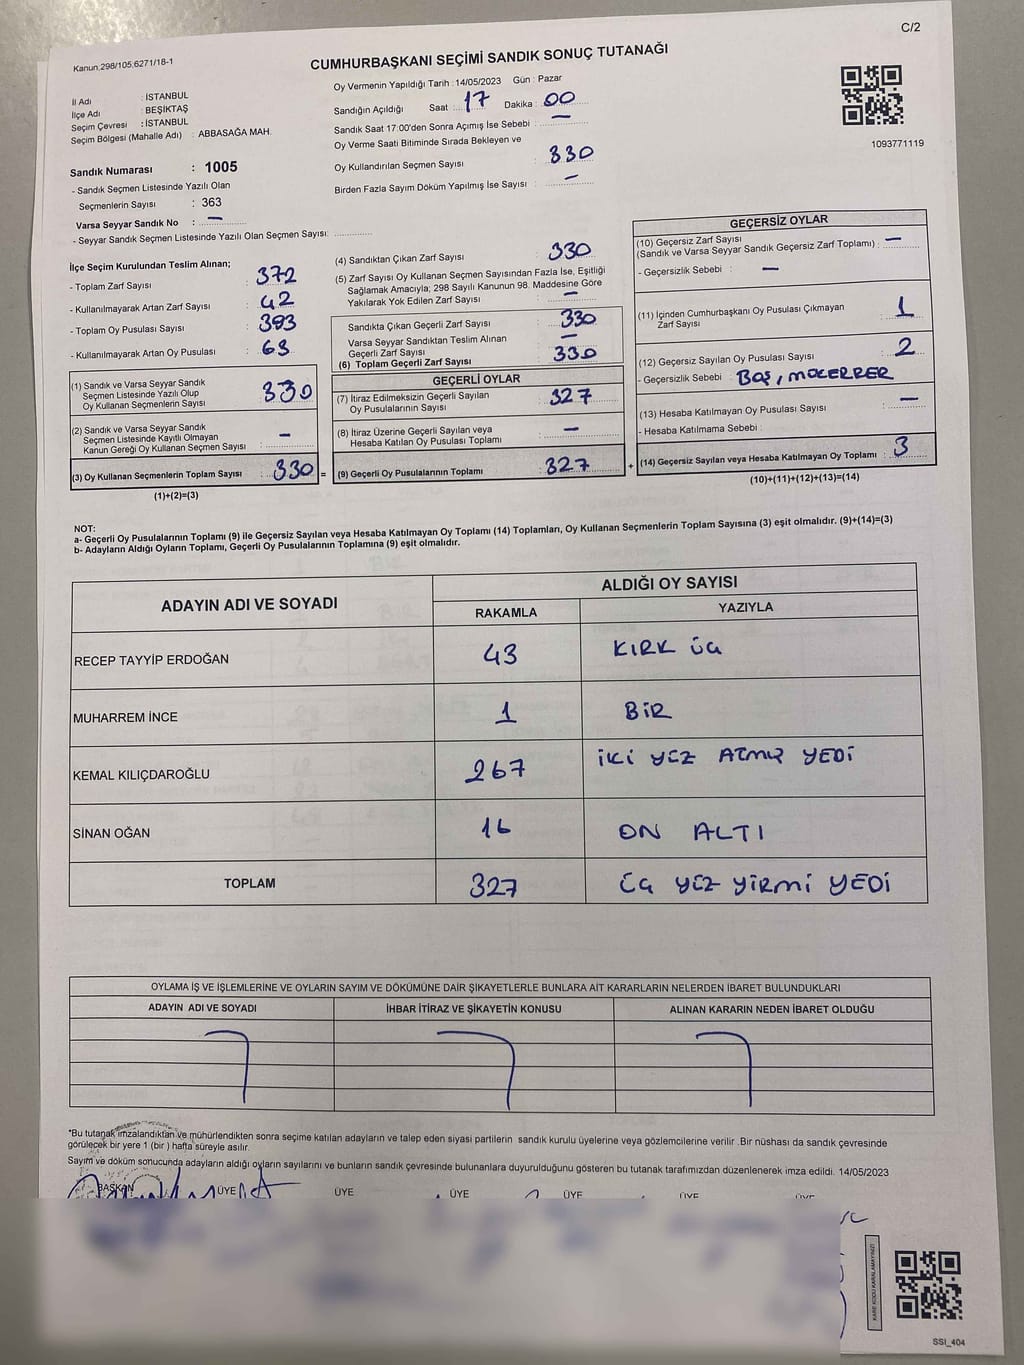 C/2
Kanun 298/105;6271/18-1
CUMHURBAŞKANI SEÇİMİ SANDIK SONUÇ TUTANAĞI
İl Adı : İSTANBUL
İlçe Adı : BEŞİKTAŞ
Seçim Çevresi : İSTANBUL
Seçim Bölgesi (Mahalle Adı) : ABBASAĞA MAH.
Oy Vermenin Yapıldığı Tarih : 14/05/2023 Gün : Pazar
Sandığın Açıldığı Saat : 17 Dakika : 00
Sandık Saat 17:00'den Sonra Açımış İse Sebebi : —
Oy Verme Saati Bitiminde Sırada Bekleyen ve
Oy Kullandırılan Seçmen Sayısı : 330
Birden Fazla Sayım Döküm Yapılmış İse Sayısı : —
1093771119
Sandık Numarası : 1005
- Sandık Seçmen Listesinde Yazılı Olan
Seçmenlerin Sayısı : 363
Varsa Seyyar Sandık No : —
- Seyyar Sandık Seçmen Listesinde Yazılı Olan Seçmen Sayısı:
İlçe Seçim Kurulundan Teslim Alınan;
- Toplam Zarf Sayısı : 372
- Kullanılmayarak Artan Zarf Sayısı : 42
- Toplam Oy Pusulası Sayısı : 393
- Kullanılmayarak Artan Oy Pusulası : 63
(1) Sandık ve Varsa Seyyar Sandık
Seçmen Listesinde Yazılı Olup
Oy Kullanan Seçmenlerin Sayısı : 330
(2) Sandık ve Varsa Seyyar Sandık
Seçmen Listesinde Kayıtlı Olmayan
Kanun Gereği Oy Kullanan Seçmen Sayısı : —
(3) Oy Kullanan Seçmenlerin Toplam Sayısı : 330 =
(1)+(2)=(3)
(4) Sandıktan Çıkan Zarf Sayısı : 330
(5) Zarf Sayısı Oy Kullanan Seçmen Sayısından Fazla İse, Eşitliği
Sağlamak Amacıyla; 298 Sayılı Kanunun 98. Maddesine Göre
Yakılarak Yok Edilen Zarf Sayısı : —
Sandıkta Çıkan Geçerli Zarf Sayısı : 330
Varsa Seyyar Sandıktan Teslim Alınan
Geçerli Zarf Sayısı : —
(6) Toplam Geçerli Zarf Sayısı : 330
GEÇERLİ OYLAR
(7) İtiraz Edilmeksizin Geçerli Sayılan
Oy Pusulalarının Sayısı : 327
(8) İtiraz Üzerine Geçerli Sayılan veya
Hesaba Katılan Oy Pusulası Toplamı : —
(9) Geçerli Oy Pusulalarının Toplamı : 327 +
GEÇERSİZ OYLAR
(10) Geçersiz Zarf Sayısı
(Sandık ve Varsa Seyyar Sandık Geçersiz Zarf Toplamı) : —
- Geçersizlik Sebebi : —
(11) İçinden Cumhurbaşkanı Oy Pusulası Çıkmayan
Zarf Sayısı : 1
(12) Geçersiz Sayılan Oy Pusulası Sayısı : 2
- Geçersizlik Sebebi : BOŞ, MÜKERRER
(13) Hesaba Katılmayan Oy Pusulası Sayısı : —
- Hesaba Katılmama Sebebi :
(14) Geçersiz Sayılan veya Hesaba Katılmayan Oy Toplamı : 3
(10)+(11)+(12)+(13)=(14)
NOT:
a- Geçerli Oy Pusulalarının Toplamı (9) ile Geçersiz Sayılan veya Hesaba Katılmayan Oy Toplamı (14) Toplamları, Oy Kullanan Seçmenlerin Toplam Sayısına (3) eşit olmalıdır. (9)+(14)=(3)
b- Adayların Aldığı Oyların Toplamı, Geçerli Oy Pusulalarının Toplamına (9) eşit olmalıdır.
ADAYIN ADI VE SOYADI
ALDIĞI OY SAYISI
RAKAMLA YAZIYLA
RECEP TAYYİP ERDOĞAN 43 KIRK ÜÇ
MUHARREM İNCE 1 BİR
KEMAL KILIÇDAROĞLU 267 İKİ YÜZ ATMIŞ YEDİ
SİNAN OĞAN 16 ON ALTI
TOPLAM 327 ÜÇ YÜZ YİRMİ YEDİ
OYLAMA İŞ VE İŞLEMLERİNE VE OYLARIN SAYIM VE DÖKÜMÜNE DAİR ŞİKAYETLERLE BUNLARA AİT KARARLARIN NELERDEN İBARET BULUNDUKLARI
ADAYIN ADI VE SOYADI İHBAR İTİRAZ VE ŞİKAYETİN KONUSU ALINAN KARARIN NEDEN İBARET OLDUĞU
*Bu tutanak imzalandıktan ve mühürlendikten sonra seçime katılan adayların ve talep eden siyasi partilerin sandık kurulu üyelerine veya gözlemcilerine verilir .Bir nüshası da sandık çevresinde
görülecek bir yere 1 (bir ) hafta süreyle asılır.
Sayım ve döküm sonucunda adayların aldığı oyların sayılarını ve bunların sandık çevresinde bulunanlara duyurulduğunu gösteren bu tutanak tarafımızdan düzenlenerek imza edildi. 14/05/2023
BAŞKAN ÜYE ÜYE ÜYE ÜYE ÜYE ÜYE
KARE KODU KARALAMAYINIZ!
SSI_404